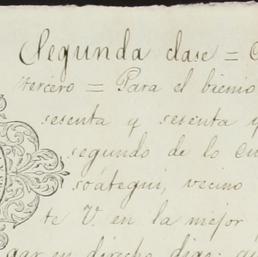 Segunda clase =
tercero = Para el bienio
sesenta y sesenta y
segundo de lo
soátegui, vecino
te V. en la mejor
gar en derecho digo: